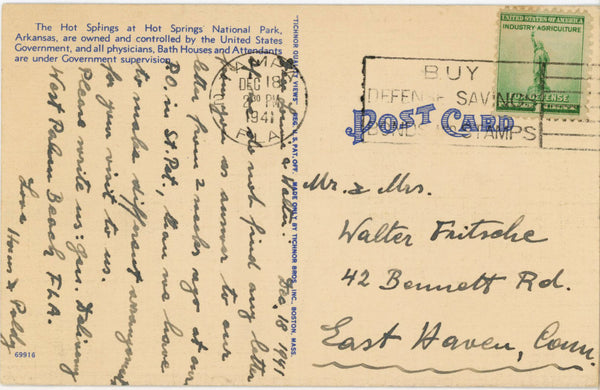 The Hot Springs at Hot Springs National Park,
Arkansas, are owned and controlled by the United States
Government, and all physicians, Bath Houses and Attendants
are under Government supervision.
Dec, 18, 1941
Walter.
If we do not find any letter
from you as answer to our
letter from 2 weeks ago at our
P.O. in St. Pet., than we have
to make different arrangements
for your visit to us.
Please write us: Gen. Delivery
West Palm Beach FLA.
Love
69916
"TICHNOR QUALITY VIEWS," REG. U. S. PAT. OFF. MADE ONLY BY TICHNOR BROS., INC., BOSTON, MASS.
DEC 18
PM
1941
ALA
BUY
DEFENSE SAVINGS
BONDS STAMPS
UNITED STATES OF AMERICA
INDUSTRY AGRICULTURE
DEFENSE
POST CARD
Mr. & Mrs.
Walter Fritsche
42 Bennett Rd.
East Haven, Conn.